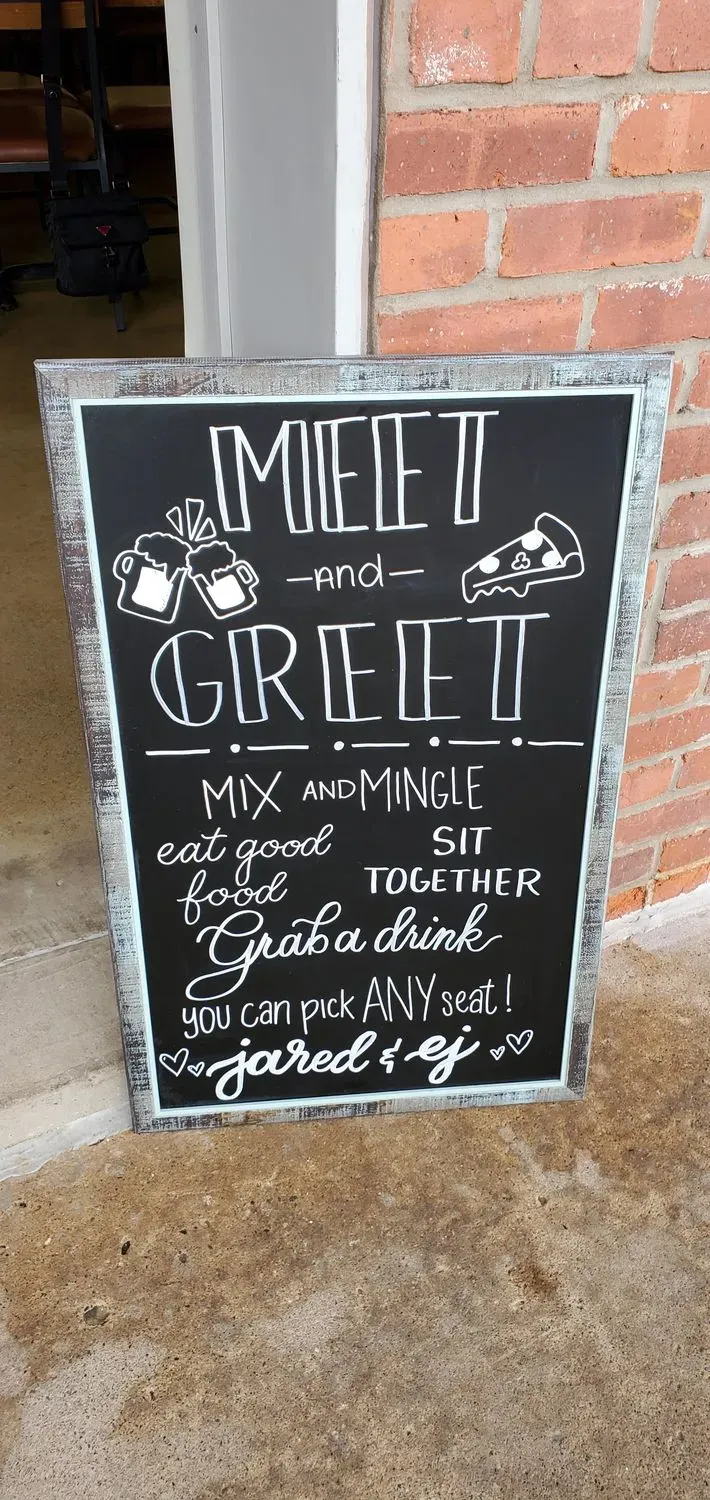 MEET
-and-
GREET
MIX AND MINGLE
eat good
food
SIT
TOGETHER
Grab a drink
you can pick ANY seat!
jared & ej